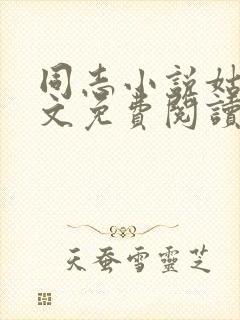 同志小说姑
文免費閱讀
天蚕雪靈芝